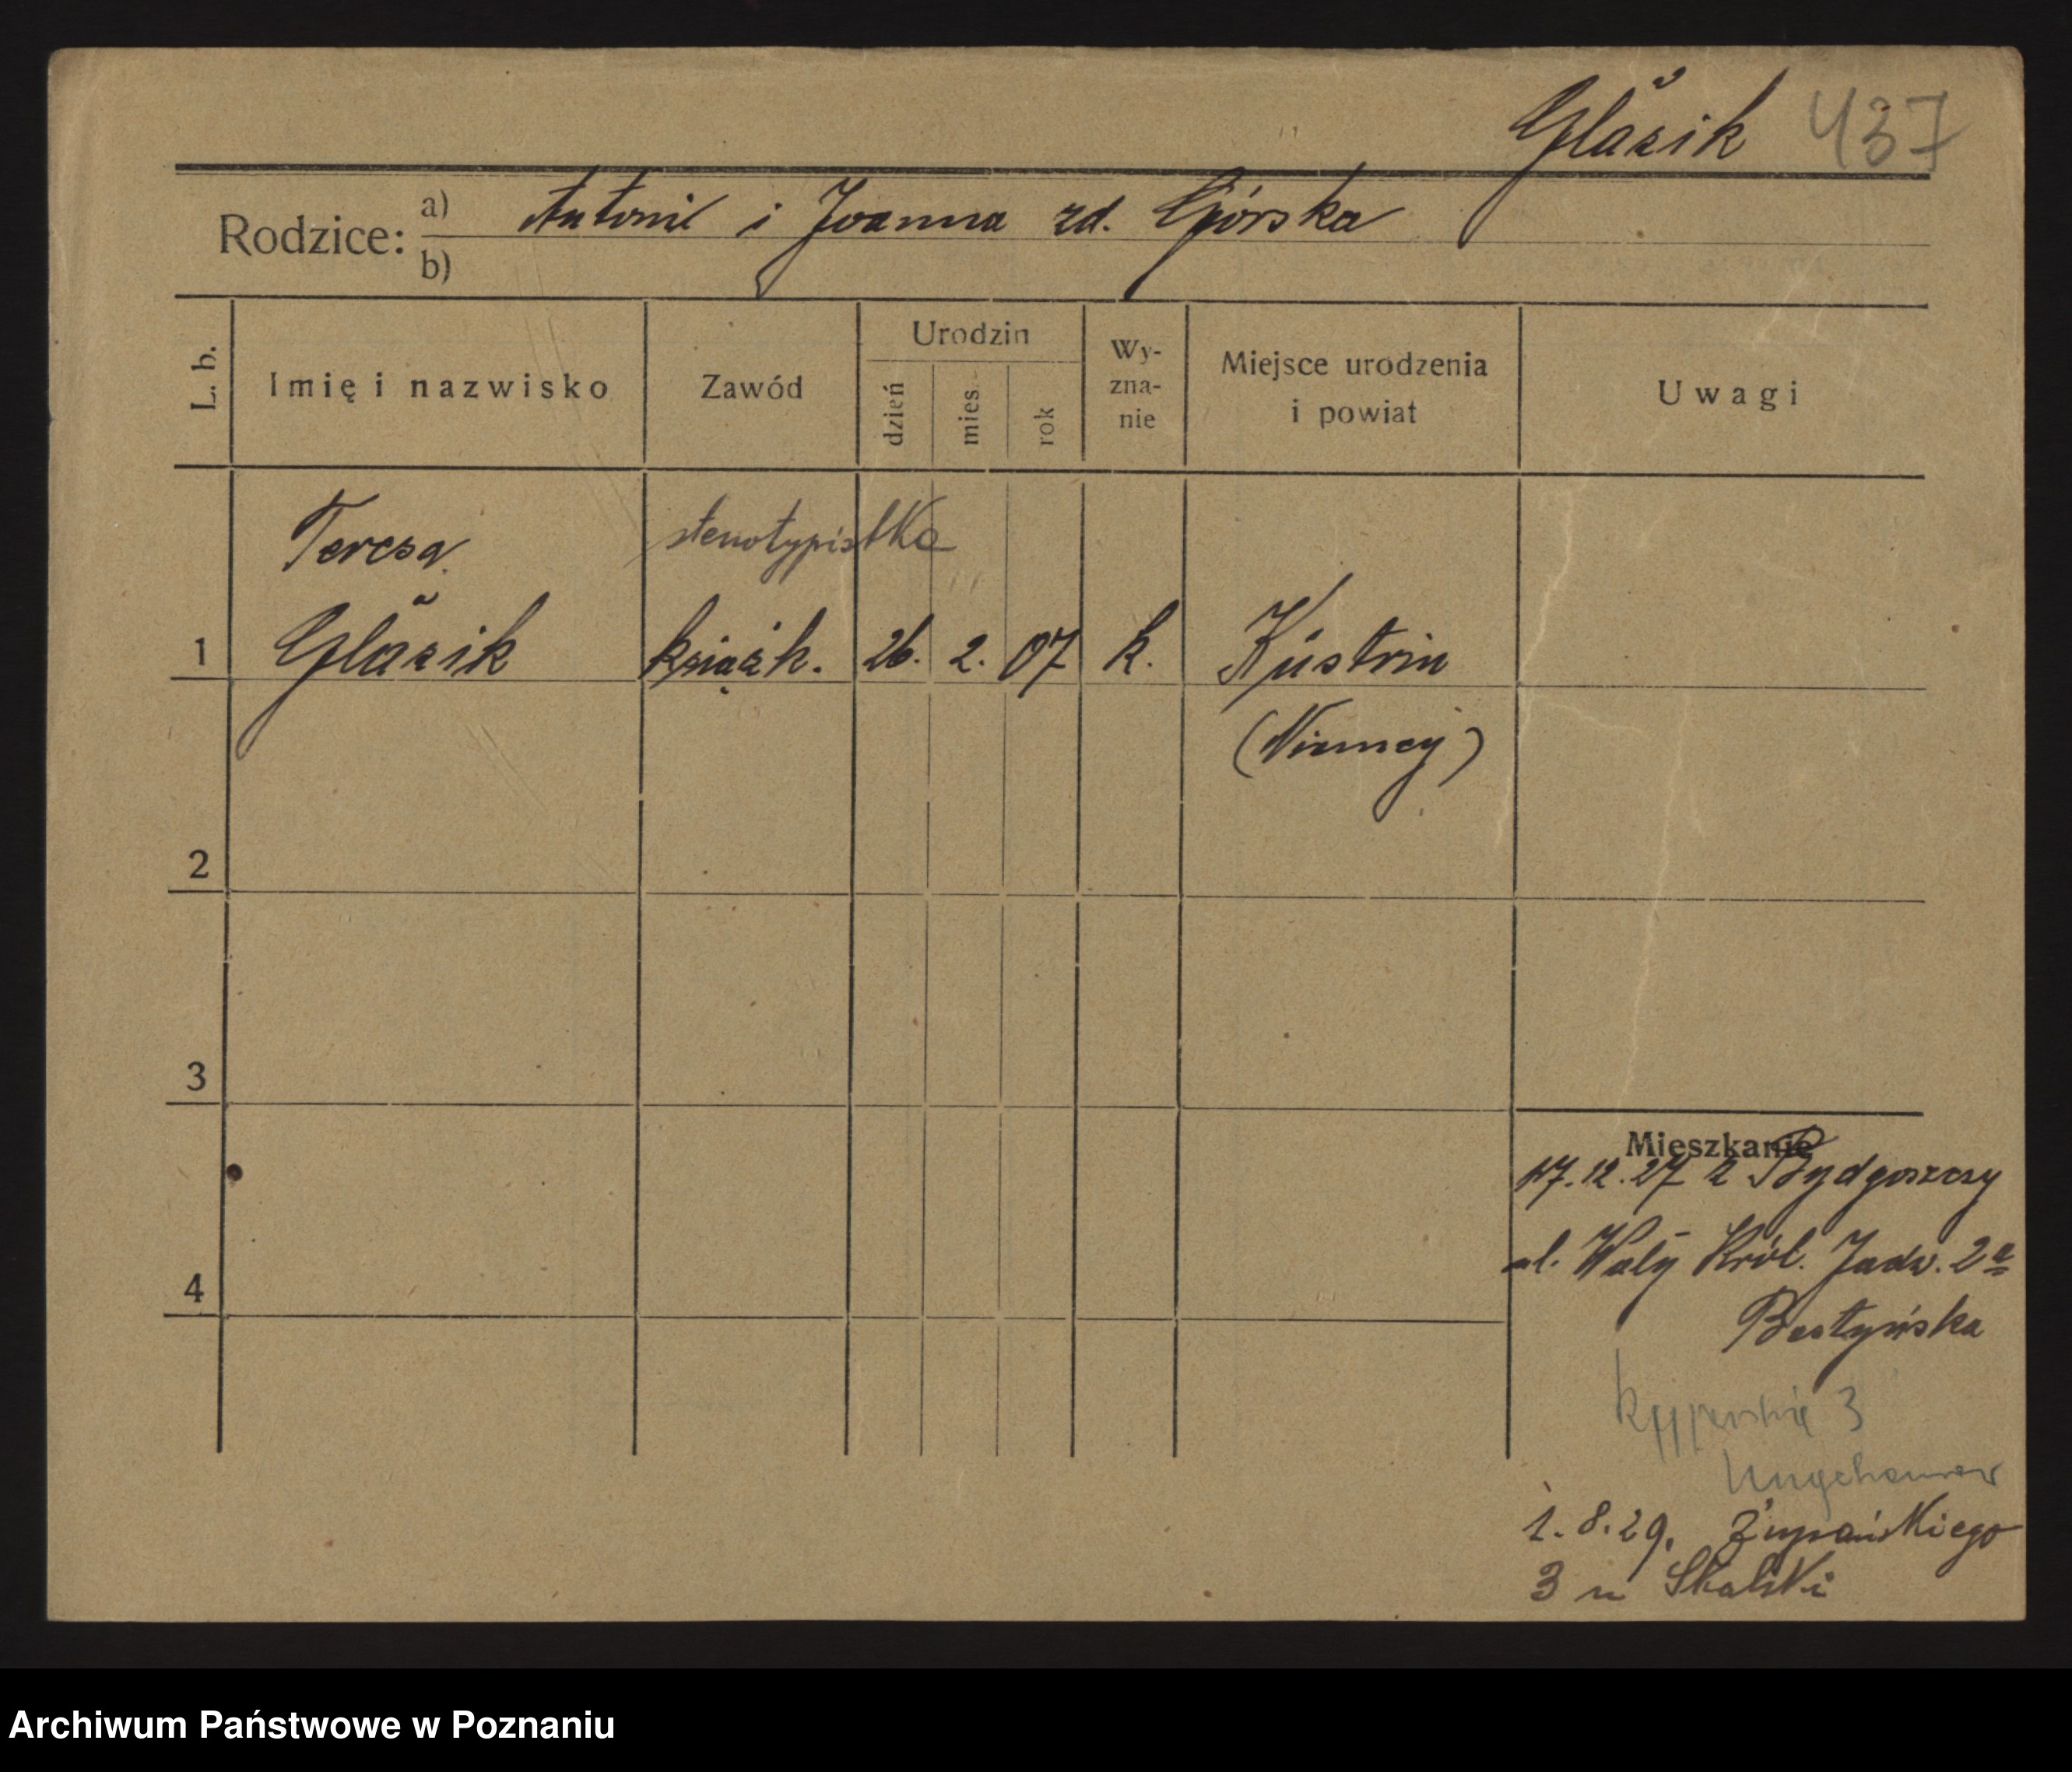 Glazik 437
Rodzice: a) Antoni i Joanna zd. Górska
b)
L. b. Imię i nazwisko Zawód Urodzin dzień mies. rok Wy-zna-nie Miejsce urodzenia i powiat Uwagi
Teresa stenotypistka
1 Glazik książk. 26. 2. 07 k. Küstrin
(Niemcy)
2
3
Mieszkanie
17.12.27 z Bydgoszczy
4 ul. Wały Król. Jadw. 2a
3
1.8.29. Żupańskiego
3 u Skalski
Archiwum Państwowe w Poznaniu